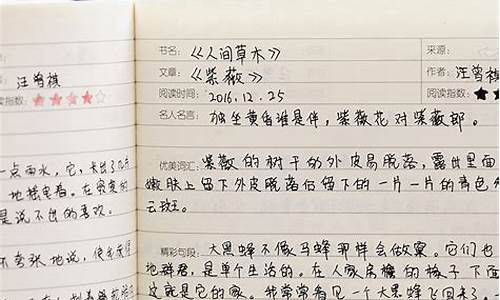 汪曾祺
阅读指数：
一点雨水，它，卡出了几片
地摇曳着。在寂寞的
是说不出的喜欢。
不夸张地说，使我获得
书名：《人间草木》
来源：
文章：《紫薇》
作者：汪曾祺
阅读时间：2016.12.25
阅读指数：
名人名言：独坐黄昏谁是伴，紫薇花对紫薇郎。
优美词汇：紫薇的树干的外皮易脱落，露出里面
嫩肤上留下外皮脱落后留下的一片一片的青色
云斑。
精彩句段：大黑蜂不像马蜂那样会做窠。它们也
地群居，是单个生活的。在人家房檐的椽子下面
这就是它的家。我常常看见一个大黑蜂飞回来了